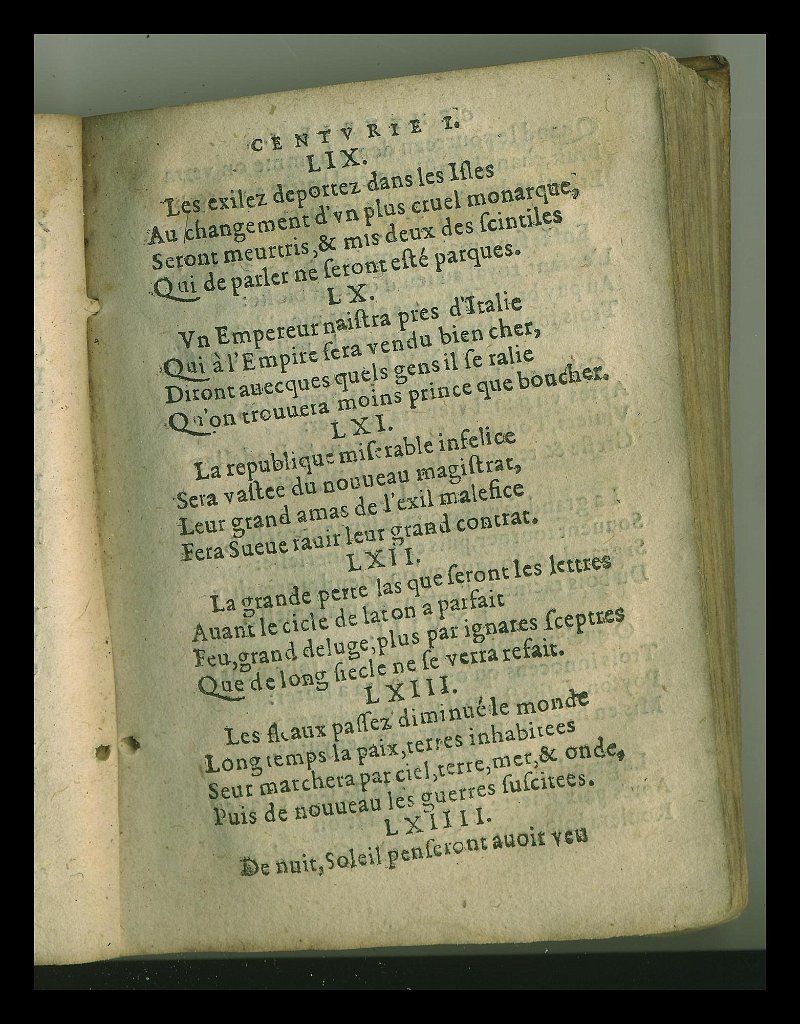 CENTVRIE I.
LIX.
Les exilez deportez dans les Iſles
Au changement d'vn plus cruel monarque,
Seront meurtris,& mis deux des ſcintiles
Qui de parler ne ſeront eſté parques.
LX.
Vn Empereur naiſtra pres d'Italie
Qui à l'Empire ſera vendu bien cher,
Diront auecques quels gens il ſe ralie
Qu'on trouuera moins prince que boucher.
LXI.
La republique miſerable infelice
Sera vaſtee du nouueau magiſtrat,
Leur grand amas de l'exil malefice
Fera Sueue rauir leur grand contrat.
LXII.
La grande perte las que ſeront les lettres
Auant le cicle de laton a parfait
Feu,grand deluge,plus par ignares ſceptres
Que de long ſiecle ne ſe verra refait.
LXIII.
Les fleaux paſſez diminué le monde
Long temps la paix,terres inhabitees
Seur marchera par ciel,terre,mer,& onde,
Puis de nouueau les guerres ſuſcitees.
LXIIII.
De nuit,Soleil penſeront auoir veu